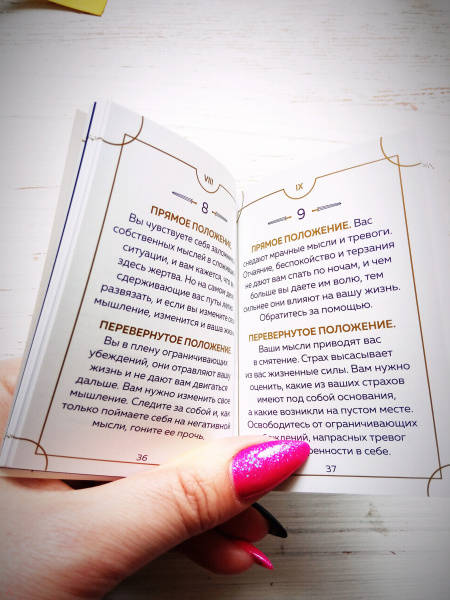 VIII
8
ПРЯМОЕ ПОЛОЖЕНИЕ.
Вы чувствуете себя
собственных мыслей в сложной
ситуации, и вам кажется, что вы
здесь жертва. Но на самом деле
сдерживающие вас путы легко
развязать, и если вы измените свое
мышление, изменится и ваша жизнь.
ПЕРЕВЕРНУТОЕ ПОЛОЖЕНИЕ.
Вы в плену ограничивающих
убеждений, они отравляют вашу
жизнь и не дают вам двигаться
дальше. Вам нужно изменить свое
мышление. Следите за собой и, как
только поймаете себя на негативной
мысли, гоните ее прочь.
36
IX
9
ПРЯМОЕ ПОЛОЖЕНИЕ. Вас
снедают мрачные мысли и тревоги.
Отчаяние, беспокойство и терзания
не дают вам спать по ночам, и чем
больше вы даете им волю, тем
сильнее они влияют на вашу жизнь.
Обратитесь за помощью.
ПЕРЕВЕРНУТОЕ ПОЛОЖЕНИЕ.
Ваши мысли приводят вас
в смятение. Страх высасывает
из вас жизненные силы. Вам нужно
оценить, какие из ваших страхов
имеют под собой основания,
а какие возникли на пустом месте.
Освободитесь от ограничивающих
напрасных тревог
в себе.
37